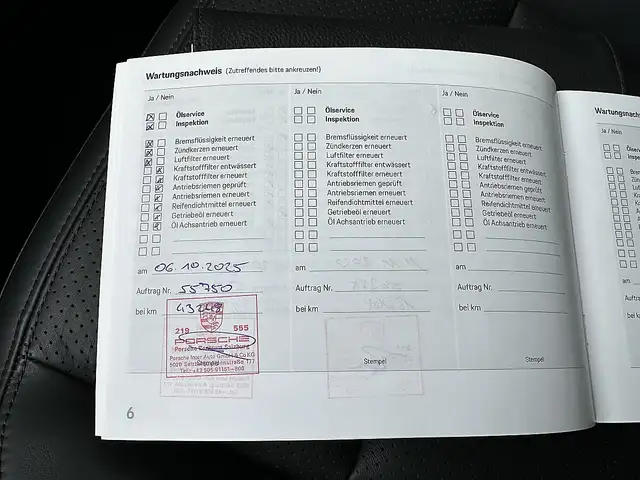 Wartungsnachweis (Zutreffendes bitte ankreuzen!)
Ja / Nein
Ölservice
Inspektion
Bremsflüssigkeit erneuert
Zündkerzen erneuert
Luftfilter erneuert
Kraftstofffilter entwässert
Kraftstofffilter erneuert
Antriebsriemen geprüft
Antriebsriemen erneuert
Reifendichtmittel erneuert
Getriebeöl erneuert
Öl Achsantrieb erneuert
am 06.10.2025
Auftrag Nr. 55750
bei km
219 555
PORSCHE
Porsche Zentrum Salzburg
Porsche Inter Auto GmbH & Co KG
Stempel
Ja / Nein
Ölservice
Inspektion
Bremsflüssigkeit erneuert
Zündkerzen erneuert
Luftfilter erneuert
Kraftstofffilter entwässert
Kraftstofffilter erneuert
Antriebsriemen geprüft
Antriebsriemen erneuert
Reifendichtmittel erneuert
Getriebeöl erneuert
Öl Achsantrieb erneuert
am
Auftrag Nr.
bei km
Stempel
Ja / Nein
Ölservice
Inspektion
Bremsflüssigkeit erneuert
Zündkerzen erneuert
Luftfilter erneuert
Kraftstofffilter entwässert
Kraftstofffilter erneuert
Antriebsriemen geprüft
Antriebsriemen erneuert
Reifendichtmittel erneuert
Getriebeöl erneuert
Öl Achsantrieb erneuert
am
Auftrag Nr.
bei km
Stempel
6
Ja / Nein
am